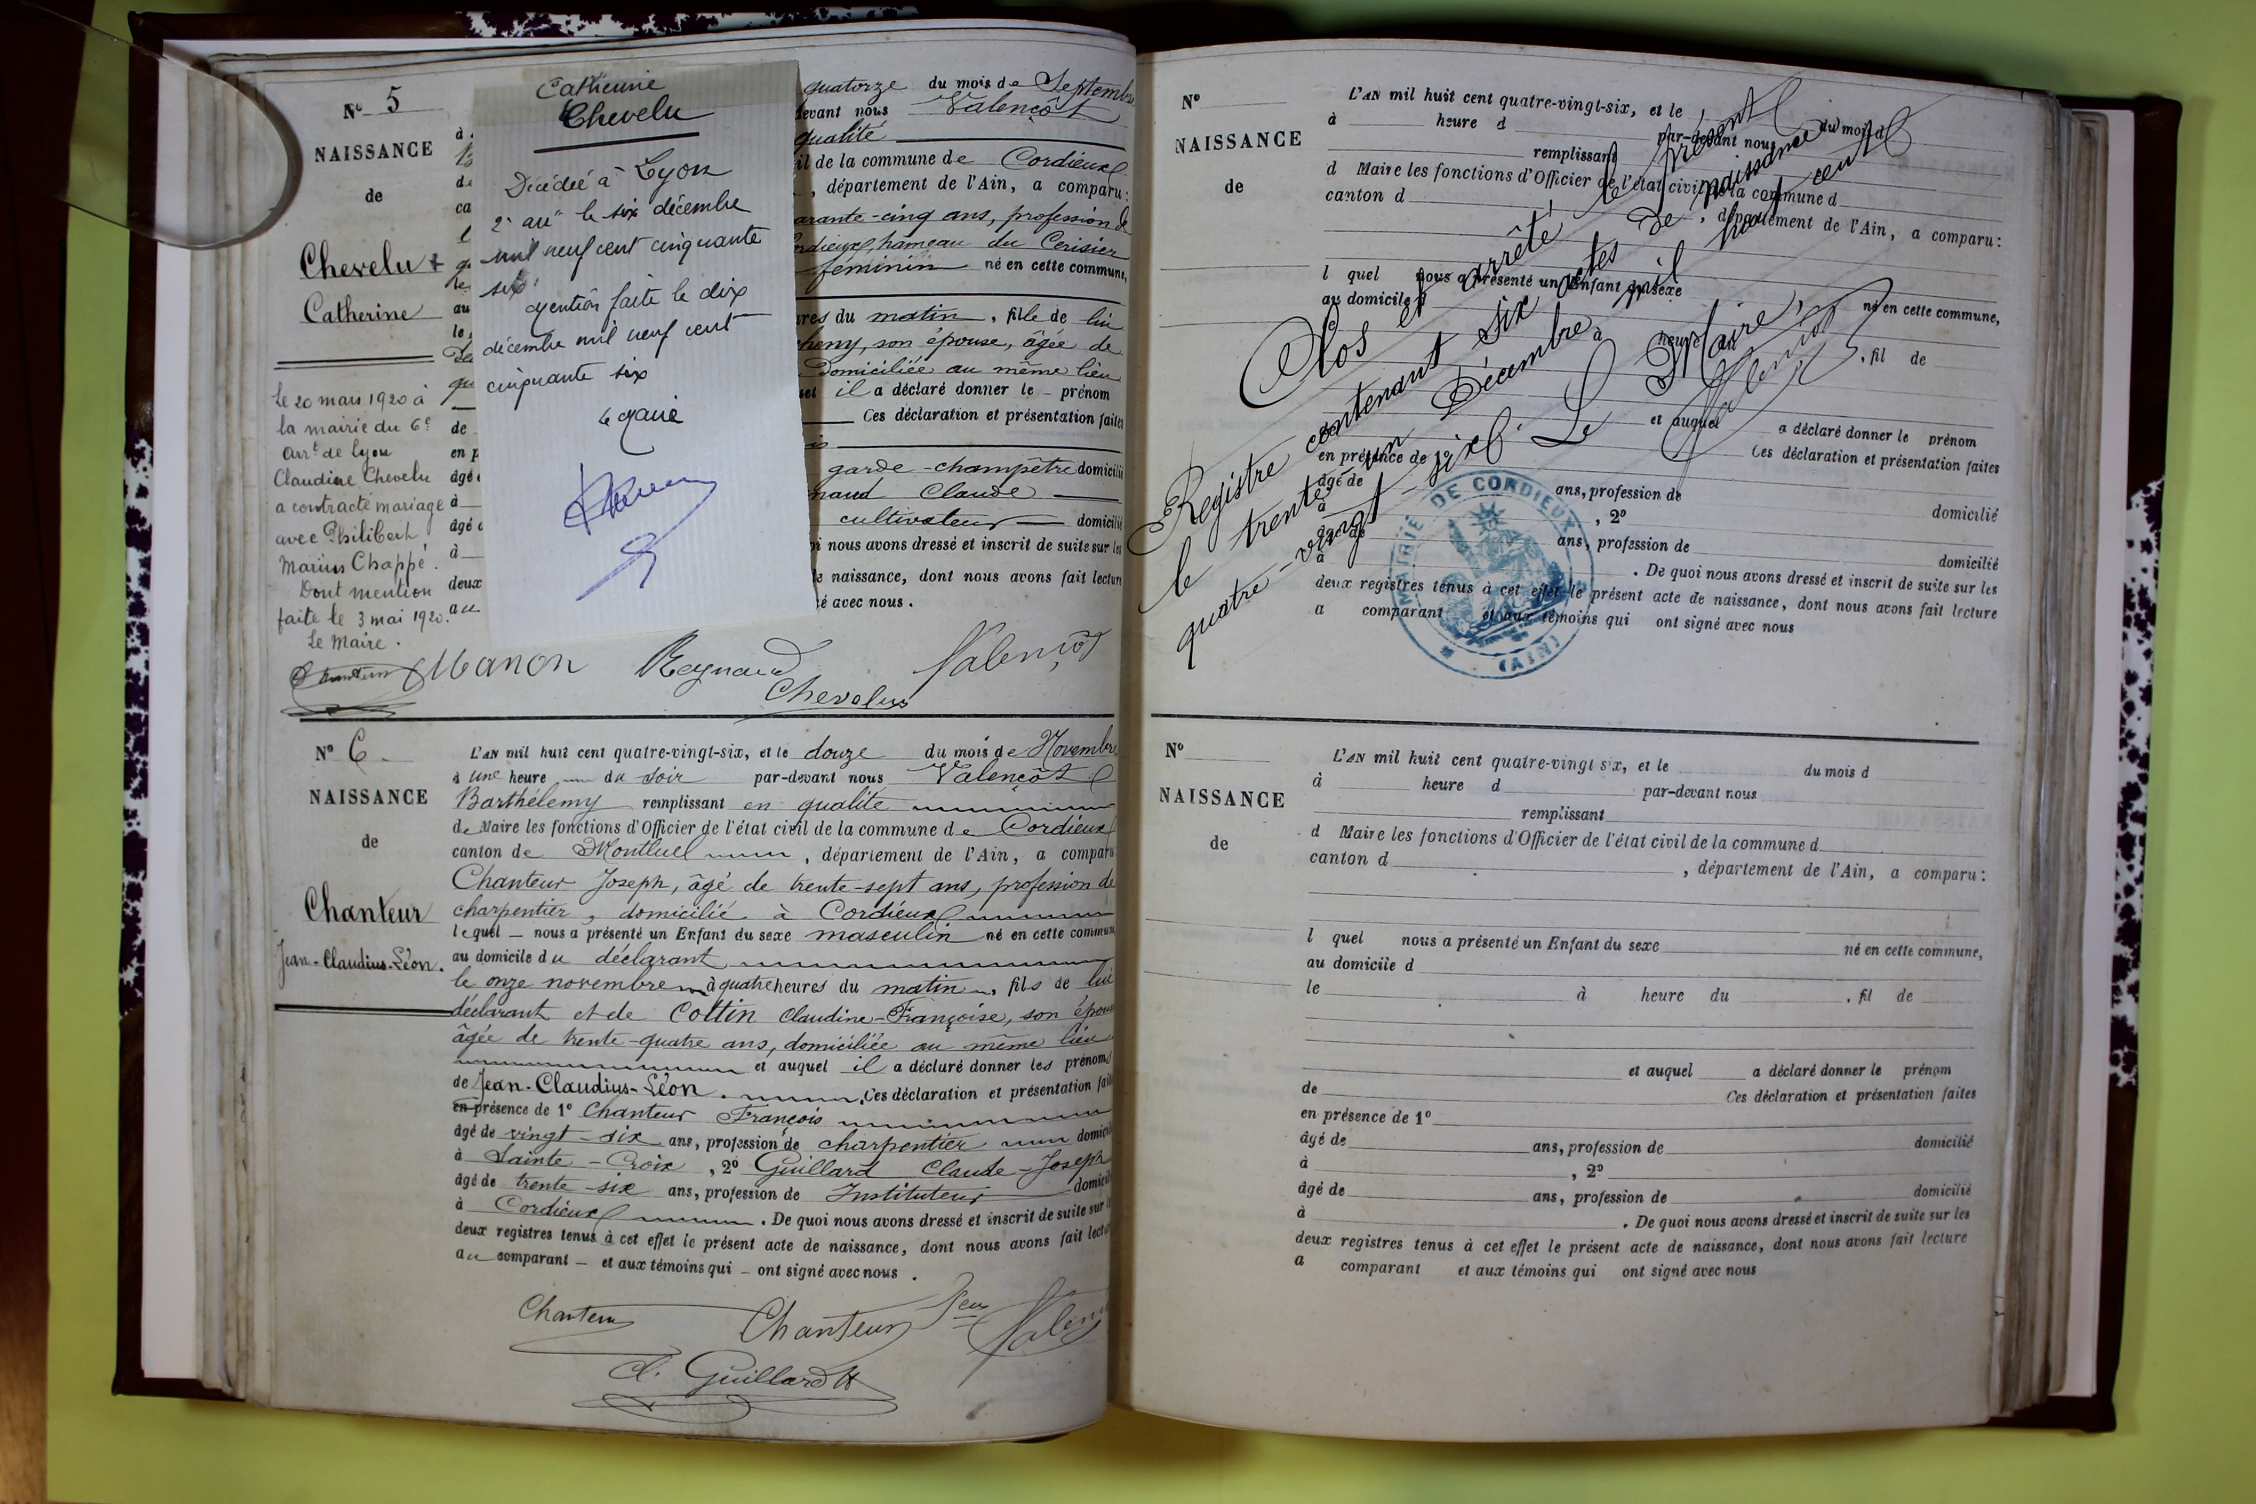 N° 5
NAISSANCE
de
Chevelu
Catherine
Le 20 mars 1920 à
la mairie du 6e
arrt de Lyon
Claudine Chevelu
a contracté mariage
avec Philibert
Marius Chappé.
Dont mention
faite le 3 mai 1920.
Le Maire.
Catherine
Chevelu
Décédée à Lyon
2e arrt le six décembre
mil neuf cent cinquante
six
Mention faite le dix
décembre mil neuf cent
cinquante six
Le Maire
quatorze du mois de Septembre
devant nous Valençôt
qualité
il de la commune de Cordieux
, département de l'Ain, a comparu:
arante-cinq ans, profession de
ordieux, hameau du Cerisier
féminin né en cette commune,
res du matin, fille de lui
cheny, son épouse, âgée de
domiciliée au même lieu
et il a déclaré donner le prénom
Ces déclaration et présentation faites
garde-champêtre domicilié
naud Claude
cultivateur domicilié
oi nous avons dressé et inscrit de suite sur les
de naissance, dont nous avons fait lecture
é avec nous.
Manon Reynaud Valençôt
Chevelu
N° 6
NAISSANCE
de
Chanteur
Jean-Claudius-Léon.
L'AN mil huit cent quatre-vingt-six, et le douze du mois de Novembre
à une heure du soir par-devant nous Valençôt
Barthélemy remplissant en qualité
de Maire les fonctions d'Officier de l'état civil de la commune de Cordieux
canton de Montluel, département de l'Ain, a comparu
Chanteur Joseph, âgé de trente-sept ans, profession de
charpentier, domicilié à Cordieux
lequel nous a présenté un Enfant du sexe masculin né en cette commune
au domicile du déclarant
le onze novembre à quatre heures du matin, fils de lui
déclarant et de Cottin Claudine-Françoise, son épouse
âgée de trente-quatre ans, domiciliée au même lieu
et auquel il a déclaré donner les prénoms
de Jean-Claudius-Léon. Ces déclaration et présentation faites
en présence de 1° Chanteur François
âgé de vingt-six ans, profession de charpentier domicilié
à Sainte-Croix, 2° Guillard Claude-Joseph
âgé de trente-six ans, profession de Instituteur domicilié
à Cordieux. De quoi nous avons dressé et inscrit de suite sur les
deux registres tenus à cet effet le présent acte de naissance, dont nous avons fait lecture
au comparant et aux témoins qui ont signé avec nous.
Chanteur Chanteur
Cl. Guillard
N°
NAISSANCE
de
L'AN mil huit cent quatre-vingt-six, et le du mois d
à heure d par-devant nous
remplissant
d Maire les fonctions d'Officier de l'état civil de la commune d
canton d , département de l'Ain, a comparu:
l quel nous a présenté un Enfant du sexe né en cette commune,
au domicile d
à heure du , fil de
et auquel a déclaré donner le prénom
Ces déclaration et présentation faites
en présence de
âgé de ans, profession de domicilié
à , 2°
âgé de ans, profession de domicilié
à . De quoi nous avons dressé et inscrit de suite sur les
deux registres tenus à cet effet le présent acte de naissance, dont nous avons fait lecture
a comparant et aux témoins qui ont signé avec nous
Clos et arrêté le présent
Registre contenant six actes de naissance
le trente-un Décembre mil huit cent
quatre-vingt-six. Le Maire,
Valençôt
MAIRIE DE CORDIEUX
(AIN)
N°
NAISSANCE
de
L'AN mil huit cent quatre-vingt six, et le du mois d
à heure d par-devant nous
remplissant
d Maire les fonctions d'Officier de l'état civil de la commune d
canton d , département de l'Ain, a comparu:
l quel nous a présenté un Enfant du sexe né en cette commune,
au domicile d
le à heure du , fil de
et auquel a déclaré donner le prénom
de Ces déclaration et présentation faites
en présence de 1°
âgé de ans, profession de domicilié
à , 2°
âgé de ans, profession de domicilié
à . De quoi nous avons dressé et inscrit de suite sur les
deux registres tenus à cet effet le présent acte de naissance, dont nous avons fait lecture
a comparant et aux témoins qui ont signé avec nous